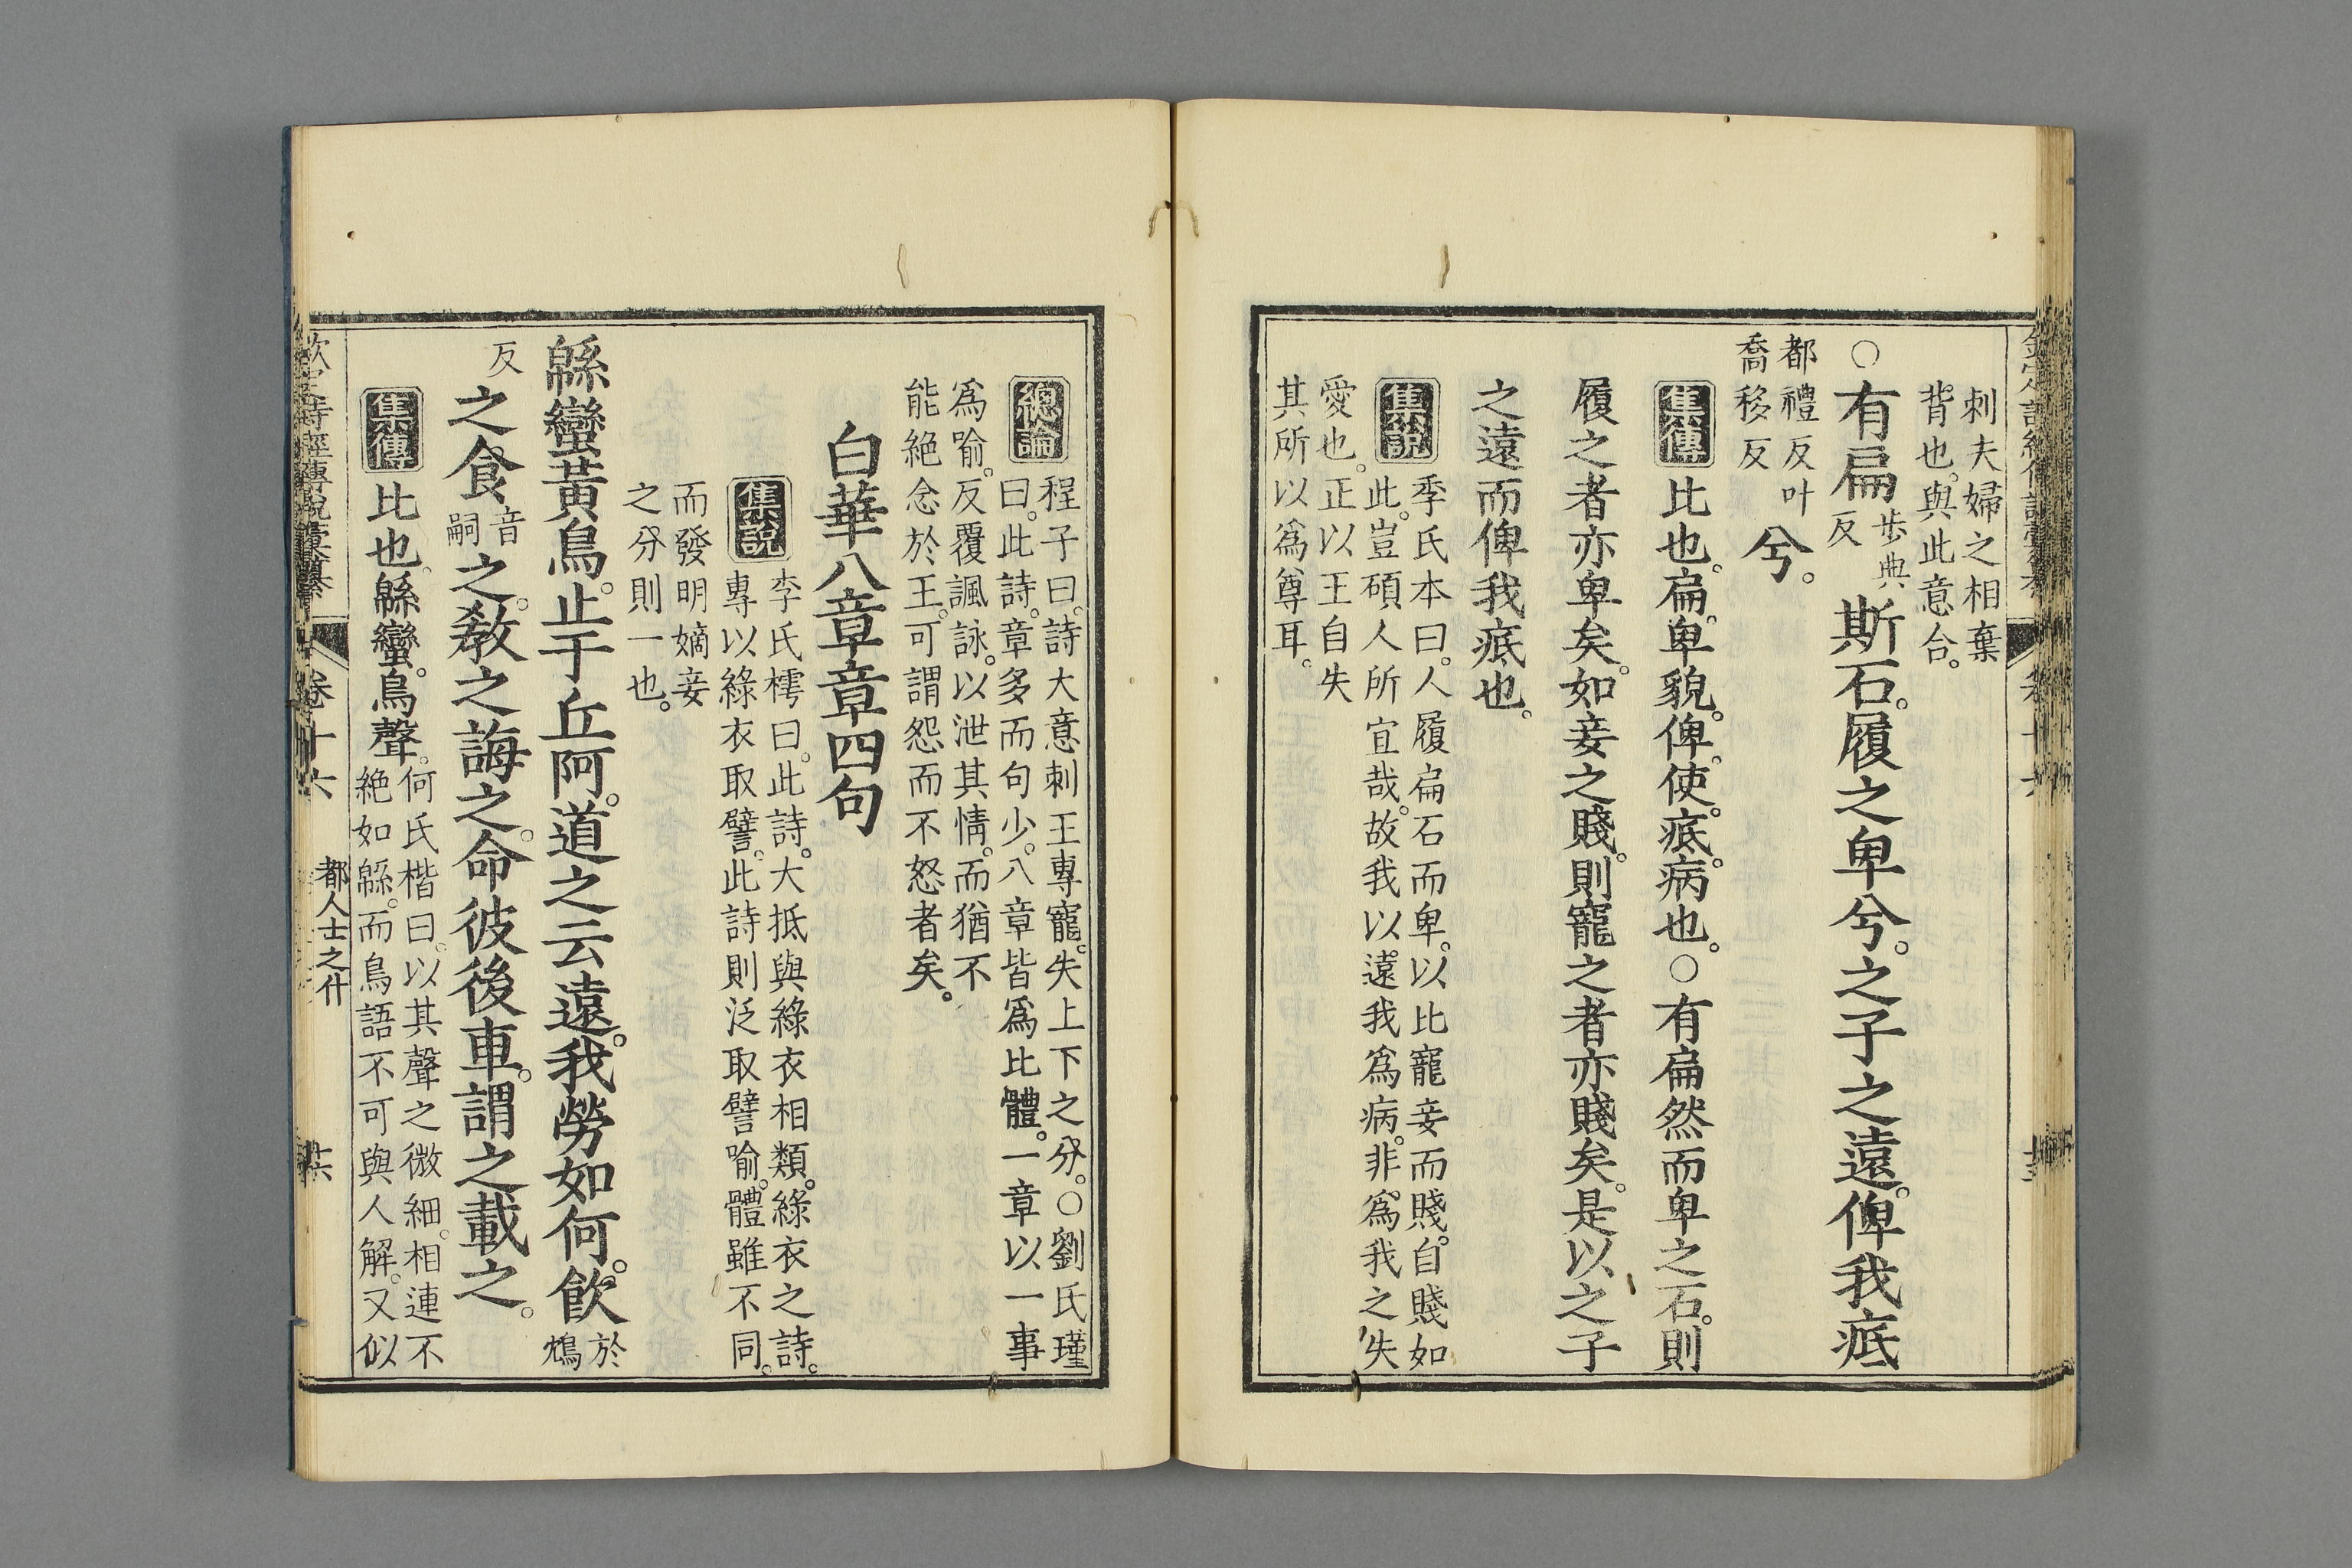 刺夫婦之相棄
背也。與此意合。
○有扁步典反斯石。履之卑兮。之子之遠。俾我疷
都禮反叶喬移反兮。
集傳 比也。扁。卑貌。俾。使。疷。病也。○有扁然而卑之石。則
履之者亦卑矣。如妾之賤。則寵之者亦賤矣。是以之子
之遠而俾我疷也。
集說 季氏本曰。人履扁石而卑。以比寵妾而賤。自賤如
此。豈碩人所宜哉。故我以遠我為病。非為我之失
愛也。正以王自失
其所以為尊耳。
總論 程子曰。詩大意刺王專寵。失上下之分。○劉氏瑾
曰。此詩。章多而句少。八章皆為比體。一章以一事
為喻。反覆諷詠。以泄其情。而猶不
能絕念於王。可謂怨而不怒者矣。
白華八章章四句
集說 李氏樗曰。此詩。大抵與綠衣相類。綠衣之詩。
專以綠衣取譬。此詩則泛取譬喻。體雖不同。
而發明嫡妾
之分則一也。
緜蠻黃鳥。止于丘阿。道之云遠。我勞如何。飲於鴆
反之食音嗣之。敎之誨之。命彼後車。謂之載之。
集傳 比也。緜蠻。鳥聲。何氏楷曰。以其聲之微細。相連不
絕如緜。而鳥語不可與人解。又似
欽定詩經傳說彙纂 卷十六 都人士之什 十六